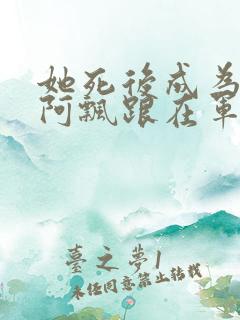 她死後成為
阿飄跟在軍
臺之夢1
未經同意禁止轉載